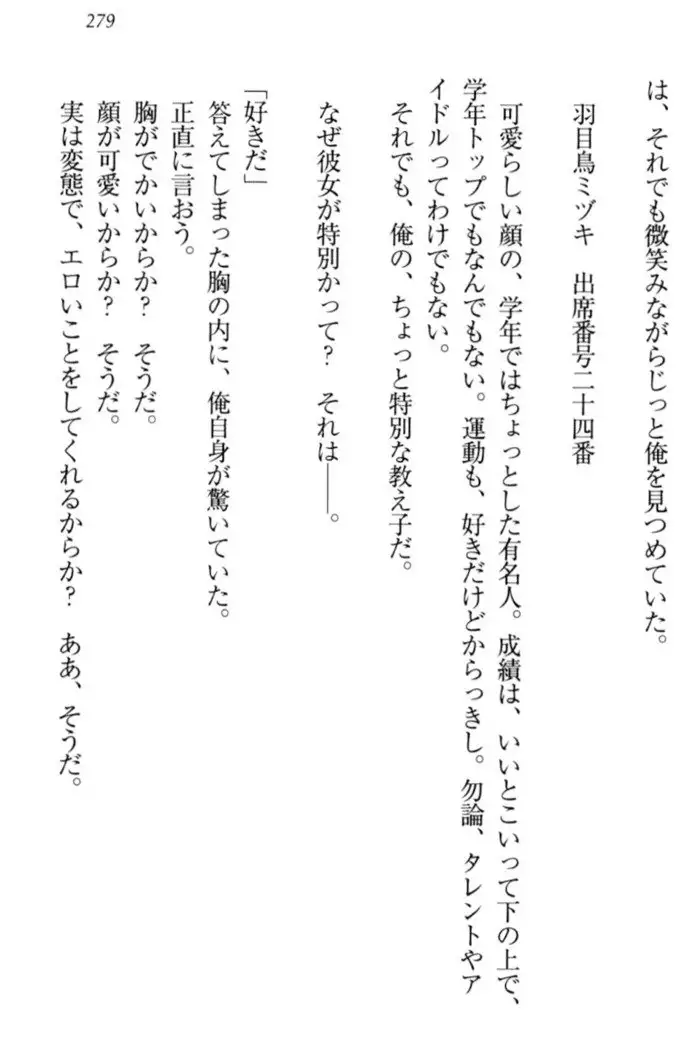 279
は、それでも微笑みながらじっと俺を見つめていた。
羽目鳥ミヅキ　出席番号二十四番
可愛らしい顔の、学年ではちょっとした有名人。成績は、いいとこいって下の上で、
学年トップでもなんでもない。運動も、好きだけどからっきし。勿論、タレントやア
イドルってわけでもない。
それでも、俺の、ちょっと特別な教え子だ。
なぜ彼女が特別かって？　それは――。
「好きだ」
答えてしまった胸の内に、俺自身が驚いていた。
正直に言おう。
胸がでかいからか？　そうだ。
顔が可愛いからか？　そうだ。
実は変態で、エロいことをしてくれるからか？　ああ、そうだ。